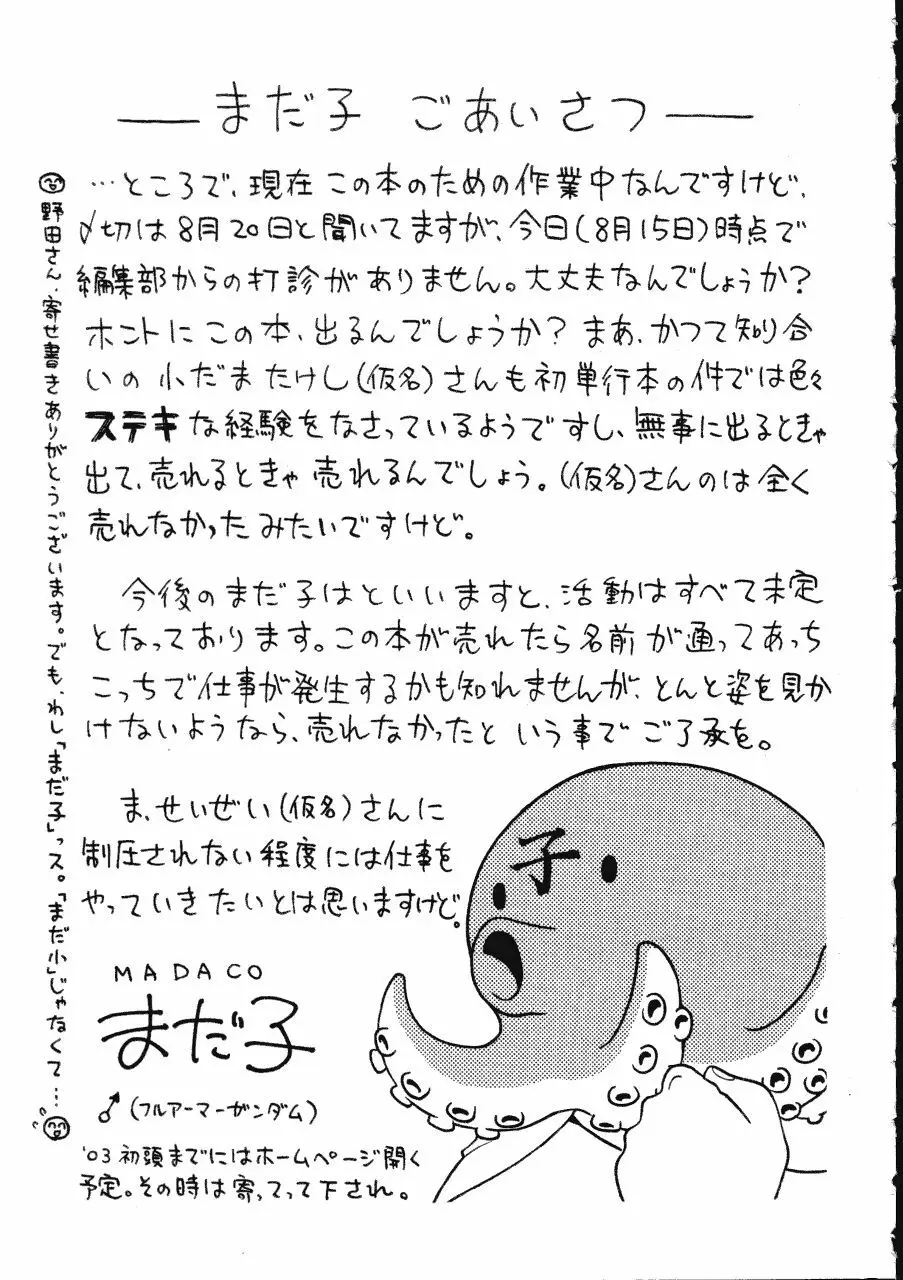 まだ子 ごあいさつ
…ところで、現在 この本のための作業中なんですけど、
〆切は8月20日と聞いてますが、今日(8月15日)時点で
編集部からの打診がありません。大丈夫なんでしょうか?
ホントにこの本、出るんでしょうか? まあ、かつて知り合
いの小だまたけし(仮名)さんも初単行本の件では色々
ステキな経験をなさっているようですし、無事に出るときゃ
出て、売れるときゃ 売れるんでしょう。(仮名)さんのは全く
売れなかったみたいですけど。
今後のまだ子はといいますと、活動はすべて未定
となっております。この本が売れたら名前が通ってあっち
こっちで仕事が発生するかも知れませんが、とんと姿を見か
けないようなら、売れなかったと いう事でご了承を。
ま、せいぜい(仮名)さんに
制圧されない程度には仕事を
やっていきたいとは思いますけど。
MADACO
まだ子
♂(フルアーマーガンダム)
'03初頭までにはホームページ開く
予定。その時は寄ってって下され。
野田さん、寄せ書きありがとうございます。でも、わし「まだ子」っス。「まだ小」じゃなくて…
子